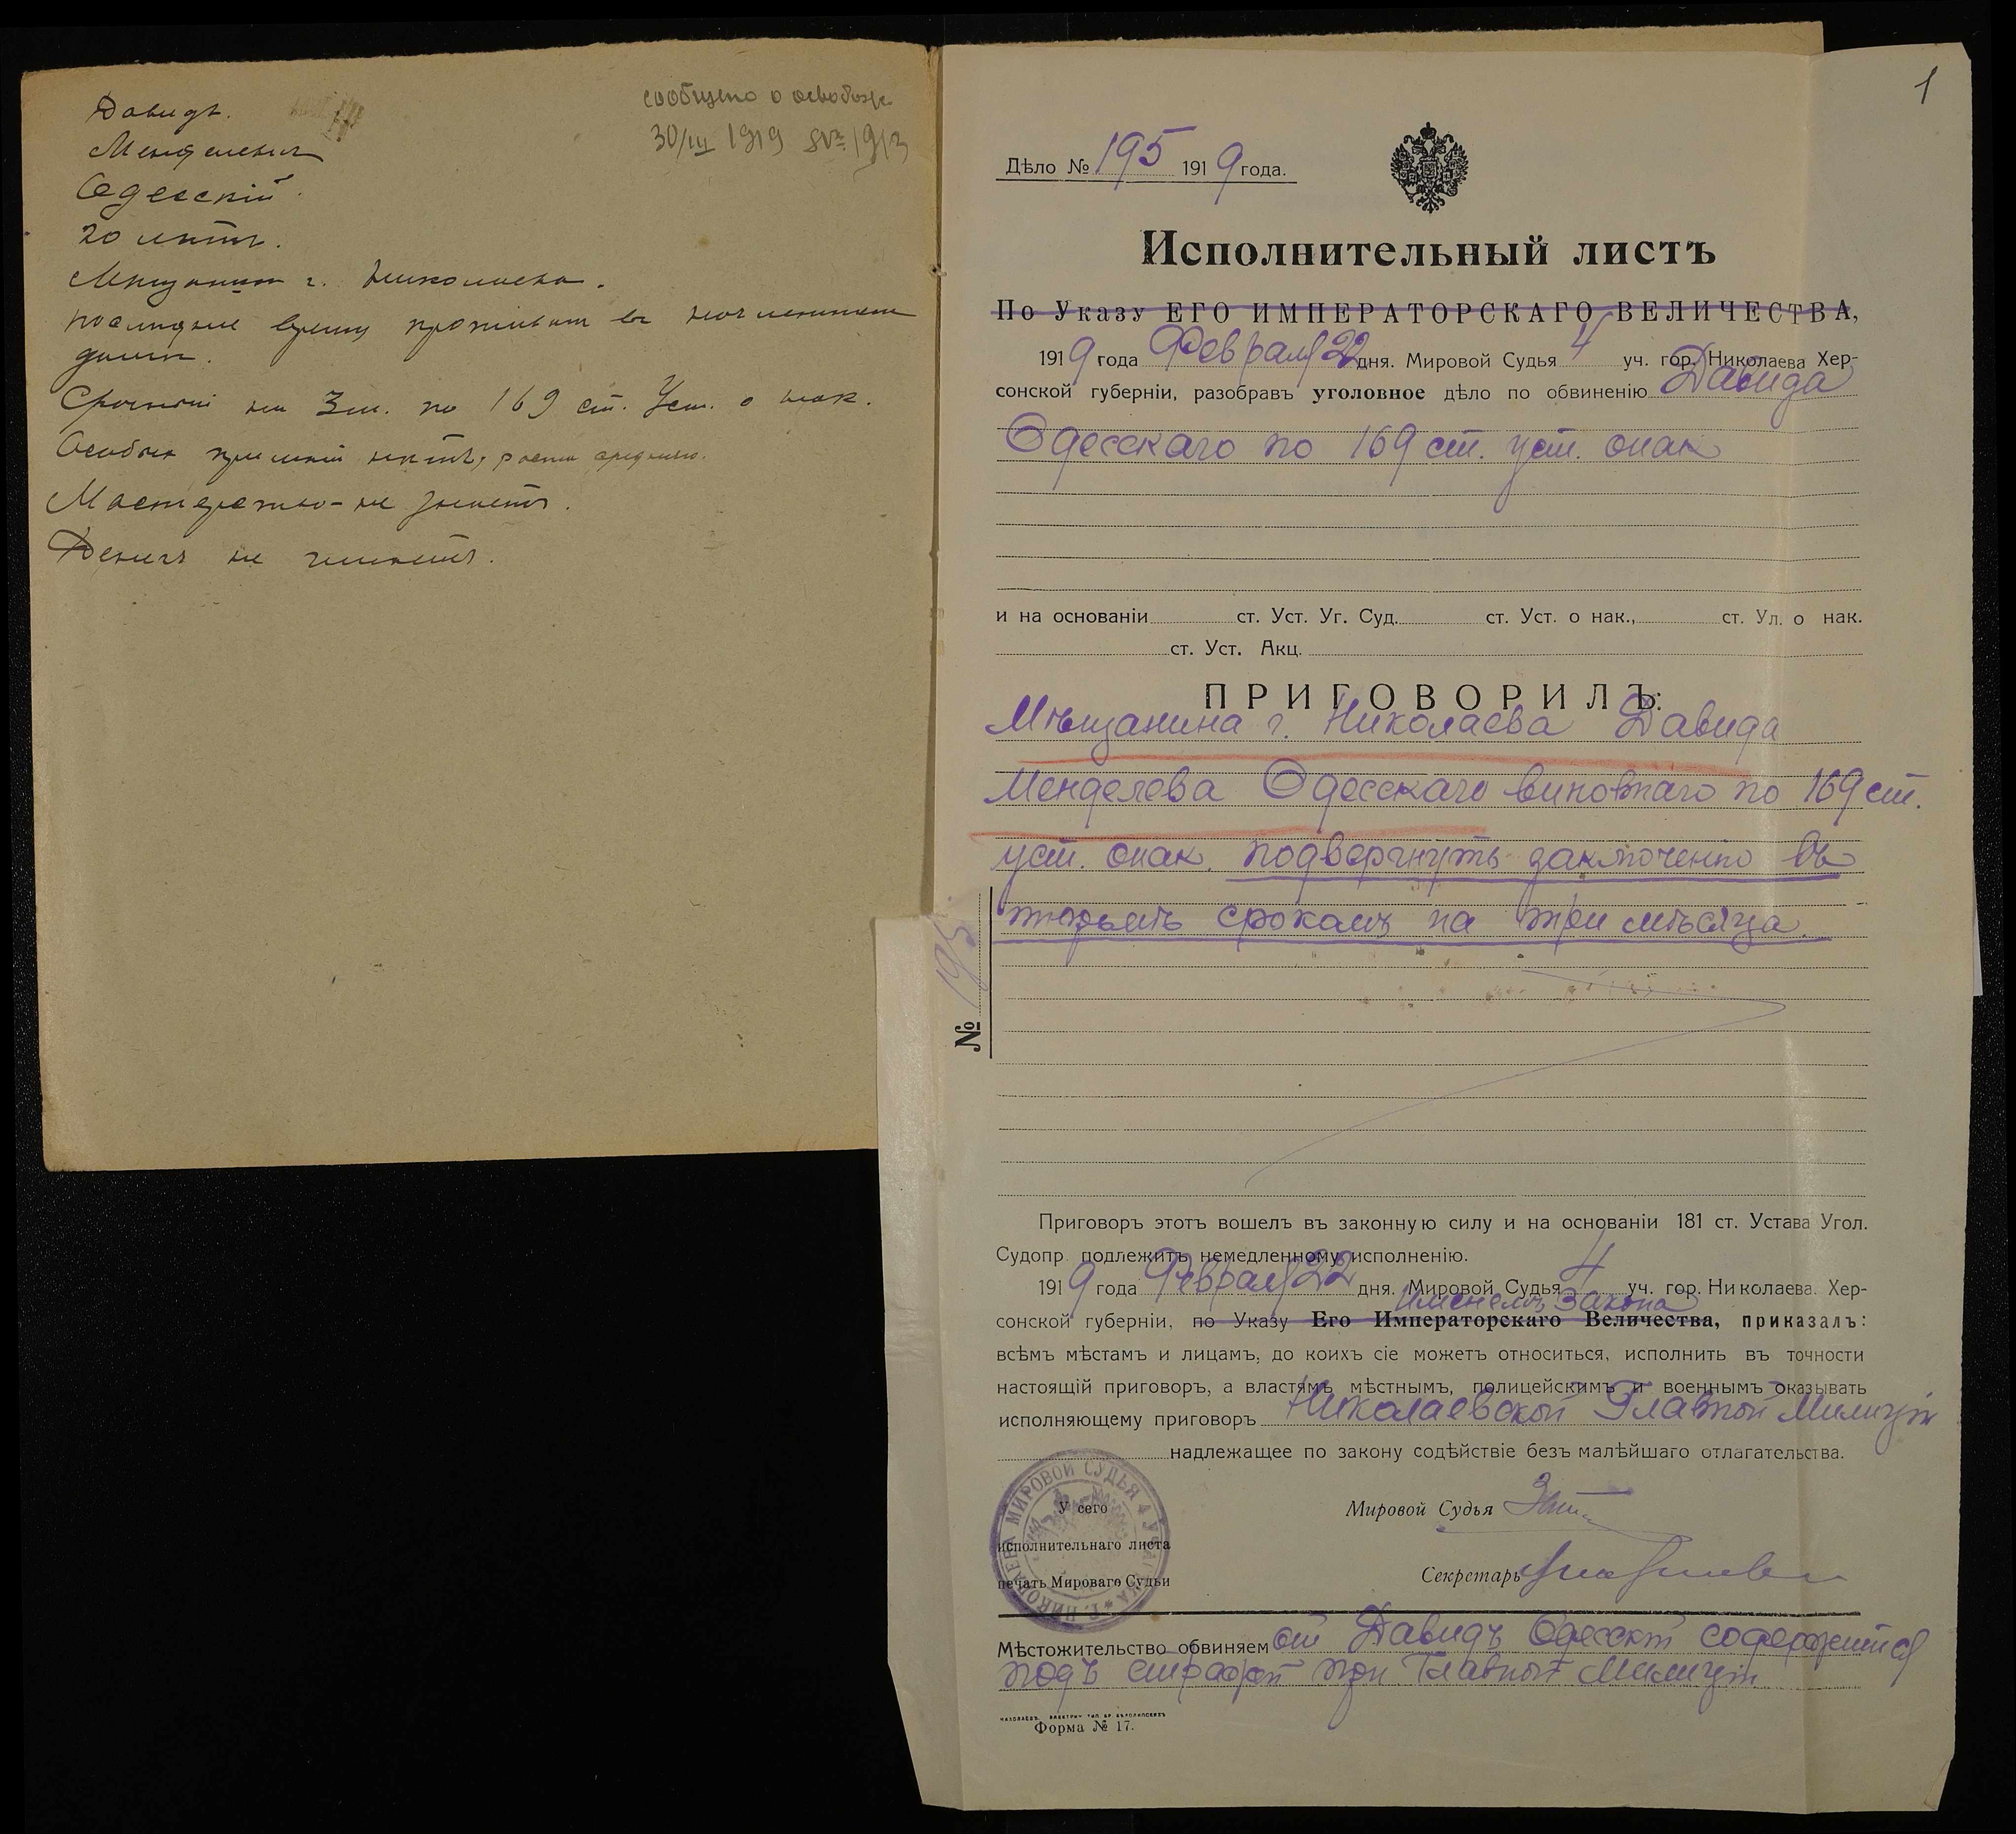 Давидъ.
Менделевич
Одесскій.
20 лѣтъ.
Мѣщанин г. Николаева.
последнее время проживал въ ночлежном
доме.
Срочный на 3 м. по 169 ст. Уст. о нак.
Особых примѣт нѣтъ, роста средняго.
Мастерство - не знаетъ.
Денегъ не имѣетъ.
сообщено о освобожд.
30/III 1919
1
Дѣло № 195 1919 года.
Исполнительный листъ
По Указу ЕГО ИМПЕРАТОРСКАГО ВЕЛИЧЕСТВА,
1919 года Февраля 22 дня. Мировой Судья 4 уч. гор. Николаева Хер-
сонской губерніи, разобравъ уголовное дѣло по обвиненію Давида
Одесскаго по 169 ст. уст. онак
и на основаніи ст. Уст. Уг. Суд. ст. Уст. о нак., ст. Ул. о нак.
ст. Уст. Акц.
ПРИГОВОРИЛЪ:
Мѣщанина г. Николаева Давида
Менделева Одесскаго виновнаго по 169 ст.
уст. онак. подвергнуть заключенію въ
тюрьмѣ срокомъ на три мѣсяца.
№ 195
Приговоръ этотъ вошелъ въ законную силу и на основаніи 181 ст. Устава Угол.
Судопр. подлежитъ немедленному исполненію.
1919 года Февраля 22 дня. Мировой Судья 4 уч. гор. Николаева. Хер-
Именемъ Закона
сонской губерніи, по Указу Его Императорскаго Величества, приказалъ:
всѣмъ мѣстамъ и лицамъ, до коихъ сіе можетъ относиться, исполнить въ точности
настоящій приговоръ, а властямъ мѣстнымъ, полицейскимъ и военнымъ оказывать
исполняющему приговоръ Николаевской Главной Милиціи
надлежащее по закону содѣйствіе безъ малѣйшаго отлагательства.
МИРОВОЙ СУДЬЯ 4 УЧАСТКА * Г. НИКОЛАЕВА
У сего
исполнительнаго листа
печать Мироваго Судьи
Мировой Судья
Секретарь
Мѣстожительство обвиняемой Давидъ Одесскій содержится
подъ стражей при Главной Милиціи
НИКОЛАЕВЪ. ЭЛЕКТРИЧ. ТИП. БР. БѢЛОЛИПСКИХЪ
Форма № 17.